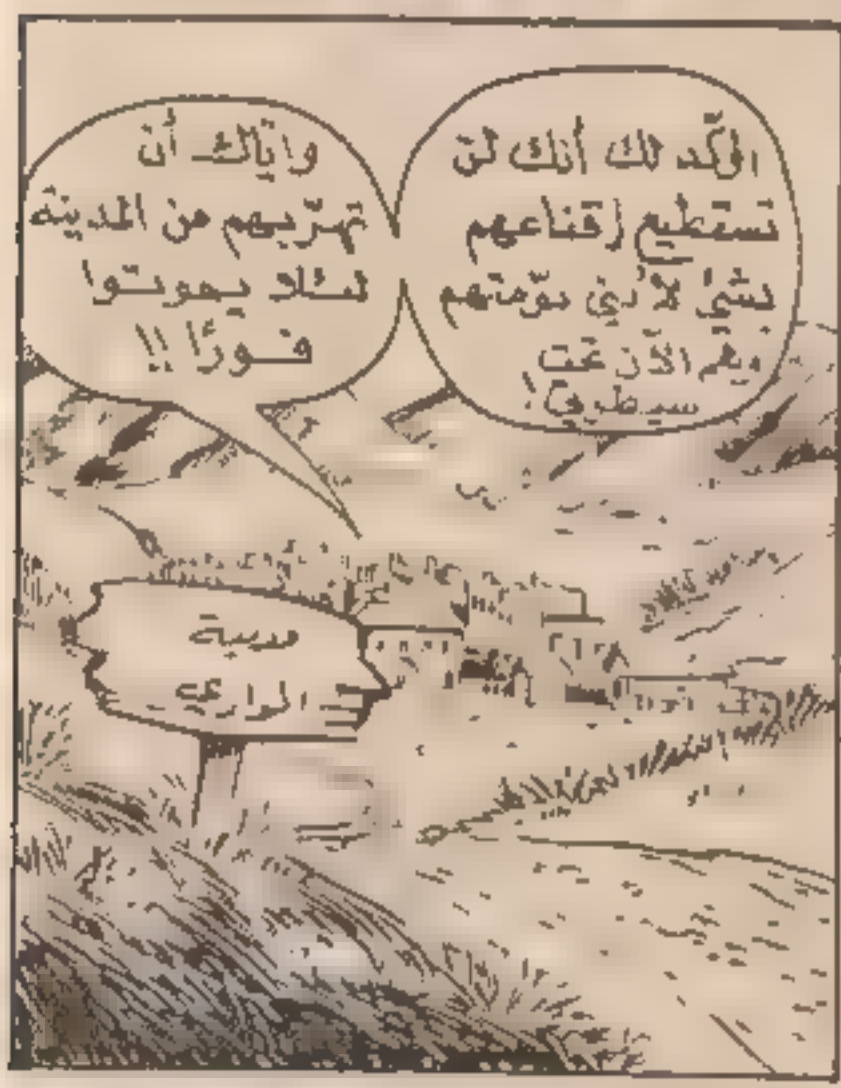 اؤكّد لك أنك لن
تستطيع إقناعهم
بشيّ لأنني نوّمتهم
وهم الآن تحت
سيطرتي!
واياك أن
تهرّبيهم من المدينة
لئلا يموتوا
فورًا !!
مدينة